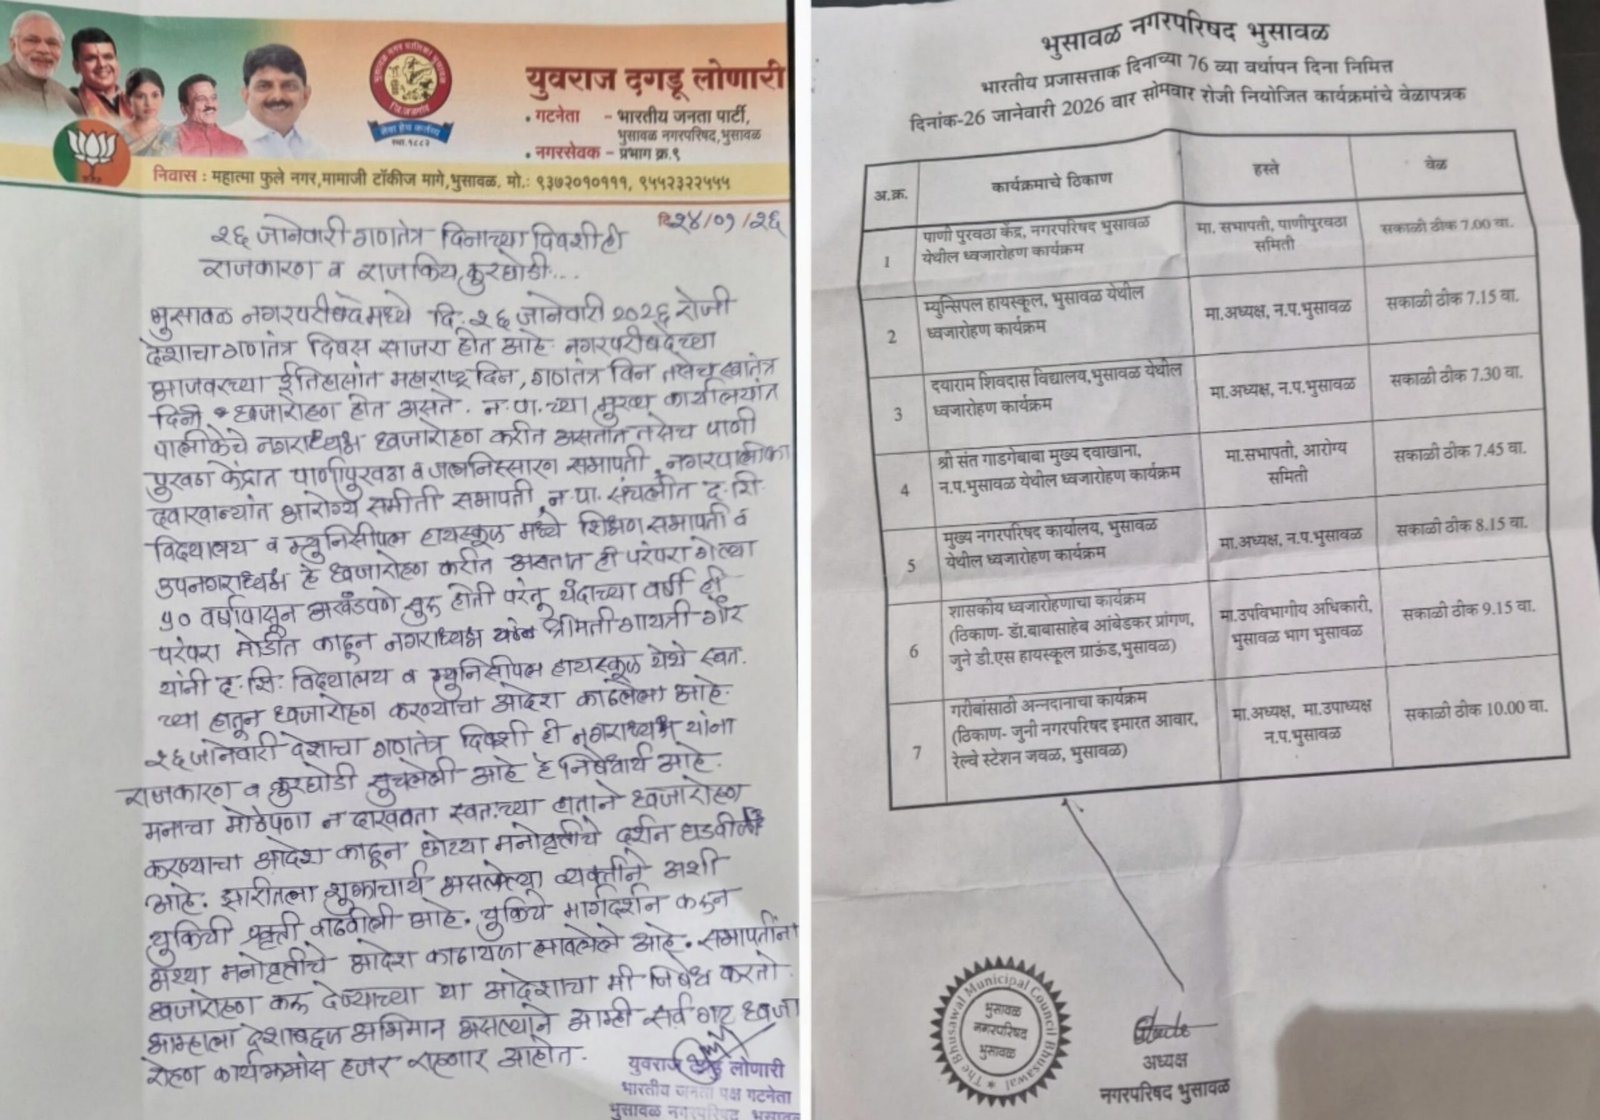 युवराज दगडू लोणारी
• गटनेता - भारतीय जनता पार्टी,
भुसावळ नगरपरिषद,भुसावळ
• नगरसेवक - प्रभाग क्र.९
निवास : महात्मा फुले नगर,मामाजी टॉकीज मागे,भुसावळ. मो.: ९३७२०१०१११, ९५५२३२२५५५
दि.२४/०१/२६
२६ जानेवारी गणतंत्र दिनाच्या दिवशीही
राजकारण व राजकिय कुरघोडी...
भुसावळ नगरपरीषदेमध्ये दि. २६ जानेवारी २०२६ रोजी
देशाचा गणतंत्र दिवस साजरा होत आहे. नगरपरीषदेच्या
आजवरच्या ईतिहासांत महाराष्ट्र दिन, गणतंत्र दिन तसेच स्वातंत्र
दिनी ध्वजारोहण होत असते. न.पा.च्या मुख्य कार्यालयांत
पालीकेचे नगराध्यक्ष ध्वजारोहण करीत असतात तसेच पाणी
पुरवठा केंद्रात पाणीपुरवठा व जलनिस्सारण सभापती, नगरपालीका
दवाखान्यांत आरोग्य समीती सभापती न.पा. संचलीत द.शि.
विद्यालय व म्युनिसीपल हायस्कूल मध्ये शिक्षण सभापती व
उपनगराध्यक्ष हे ध्वजारोहण करीत असतात ही परंपरा गेल्या
५० वर्षापासून अखंडपणे सुरू होती परंतू यंदाच्या वर्षी ही
परंपरा मोडीत काढून नगराध्यक्ष श्रीमती गायत्री गौर
यांनी द.शि. विद्यालय व म्युनिसीपल हायस्कूल येथे स्वत:
च्या हातून ध्वजारोहण करण्याचा आदेश काढलेला आहे.
२६ जानेवारी देशाचा गणतंत्र दिवशी ही नगराध्यक्ष यांना
राजकारण व कुरघोडी सुचलेली आहे हे निषेधार्थ आहे.
मनाचा मोठेपणा न दाखवता स्वत:च्या हाताने ध्वजारोहण
करण्याचा आदेश काढून छोट्या मनोवृत्तीचे दर्शन घडवीले
आहे. झारीतला शुक्राचार्य असलेल्या व्यक्तीने अशी
चुकिची प्रवृत्ती वाढवीली आहे. चुकिचे मार्गदर्शन करून
अश्या मनोवृत्तीचे आदेश काढायला लावलेले आहे. सभापतींना
ध्वजारोहण करू देण्याच्या या आदेशाचा मी निषेध करतो.
आम्हाला देशाबद्दल अभिमान असल्याने आम्ही सर्व ध्वजा
रोहण कार्यक्रमांस हजर राहणार आहोत.
युवराज लोणारी
भारतीय जनता पक्ष गटनेता
भुसावळ नगरपरिषद, भुसावळ
भुसावळ नगरपरिषद भुसावळ
भारतीय प्रजासत्ताक दिनाच्या 76 व्या वर्धापन दिना निमित्त
दिनांक-26 जानेवारी 2026 वार सोमवार रोजी नियोजित कार्यक्रमांचे वेळापत्रक
अ.क्र. कार्यक्रमाचे ठिकाण हस्ते वेळ
1 पाणी पुरवठा केंद्र, नगरपरिषद भुसावळ येथील ध्वजारोहण कार्यक्रम मा. सभापती, पाणीपुरवठा समिती सकाळी ठीक 7.00 वा.
2 म्युन्सिपल हायस्कूल, भुसावळ येथील ध्वजारोहण कार्यक्रम मा.अध्यक्ष, न.प.भुसावळ सकाळी ठीक 7.15 वा.
3 दयाराम शिवदास विद्यालय,भुसावळ येथील ध्वजारोहण कार्यक्रम मा.अध्यक्ष, न.प.भुसावळ सकाळी ठीक 7.30 वा.
4 श्री संत गाडगेबाबा मुख्य दवाखाना, न.प.भुसावळ येथील ध्वजारोहण कार्यक्रम मा.सभापती, आरोग्य समिती सकाळी ठीक 7.45 वा.
5 मुख्य नगरपरिषद कार्यालय, भुसावळ येथील ध्वजारोहण कार्यक्रम मा.अध्यक्ष, न.प.भुसावळ सकाळी ठीक 8.15 वा.
6 शासकीय ध्वजारोहणाचा कार्यक्रम (ठिकाण- डॉ.बाबासाहेब आंबेडकर प्रांगण, जुने डी.एस हायस्कूल ग्राऊंड,भुसावळ) मा.उपविभागीय अधिकारी, भुसावळ भाग भुसावळ सकाळी ठीक 9.15 वा.
7 गरीबांसाठी अन्नदानाचा कार्यक्रम (ठिकाण- जुनी नगरपरिषद इमारत आवार, रेल्वे स्टेशन जवळ, भुसावळ) मा.अध्यक्ष, मा.उपाध्यक्ष न.प.भुसावळ सकाळी ठीक 10.00 वा.
The Bhusawal Municipal Council Bhusawal
भुसावळ
नगरपरिषद
भुसावळ
अध्यक्ष
नगरपरिषद भुसावळ